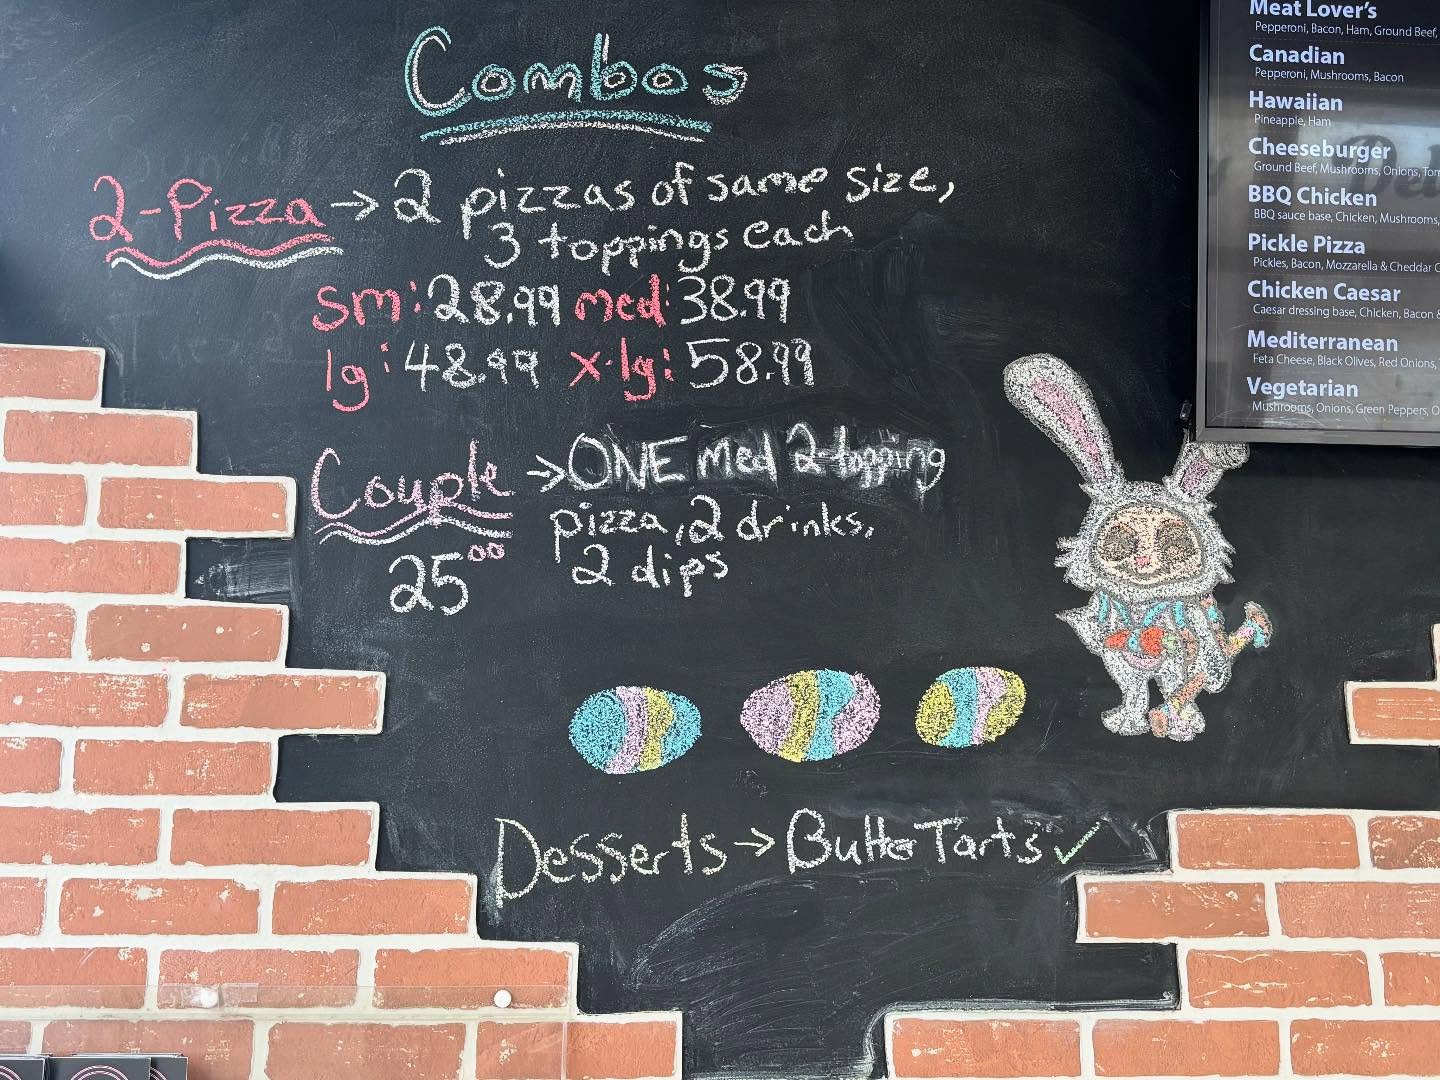 Combos
2-Pizza → 2 pizzas of same size,
3 toppings each
sm: 28.99 med: 38.99
lg: 48.99 x-lg: 58.99
Couple → ONE med 2-topping
pizza, 2 drinks,
25⁰⁰ 2 dips
Desserts → Butter Tarts ✓
Meat Lover's
Pepperoni, Bacon, Ham, Ground Beef,
Canadian
Pepperoni, Mushrooms, Bacon
Hawaiian
Pineapple, Ham
Cheeseburger
Ground Beef, Mushrooms, Onions, Tom
BBQ Chicken
BBQ sauce base, Chicken, Mushrooms,
Pickle Pizza
Pickles, Bacon, Mozzarella & Cheddar C
Chicken Caesar
Caesar dressing base, Chicken, Bacon &
Mediterranean
Feta Cheese, Black Olives, Red Onions,
Vegetarian
Mushrooms, Onions, Green Peppers, O